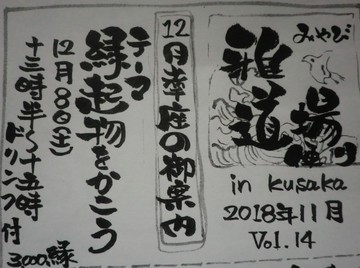 みやび
雅
道場
便り
in Kusaka
2018年11月
Vol.14
12月幸座の御案内
テーマ
縁起物をかこう
12月8日(土)
十三時半〜十五時
ドリンク付
3000縁